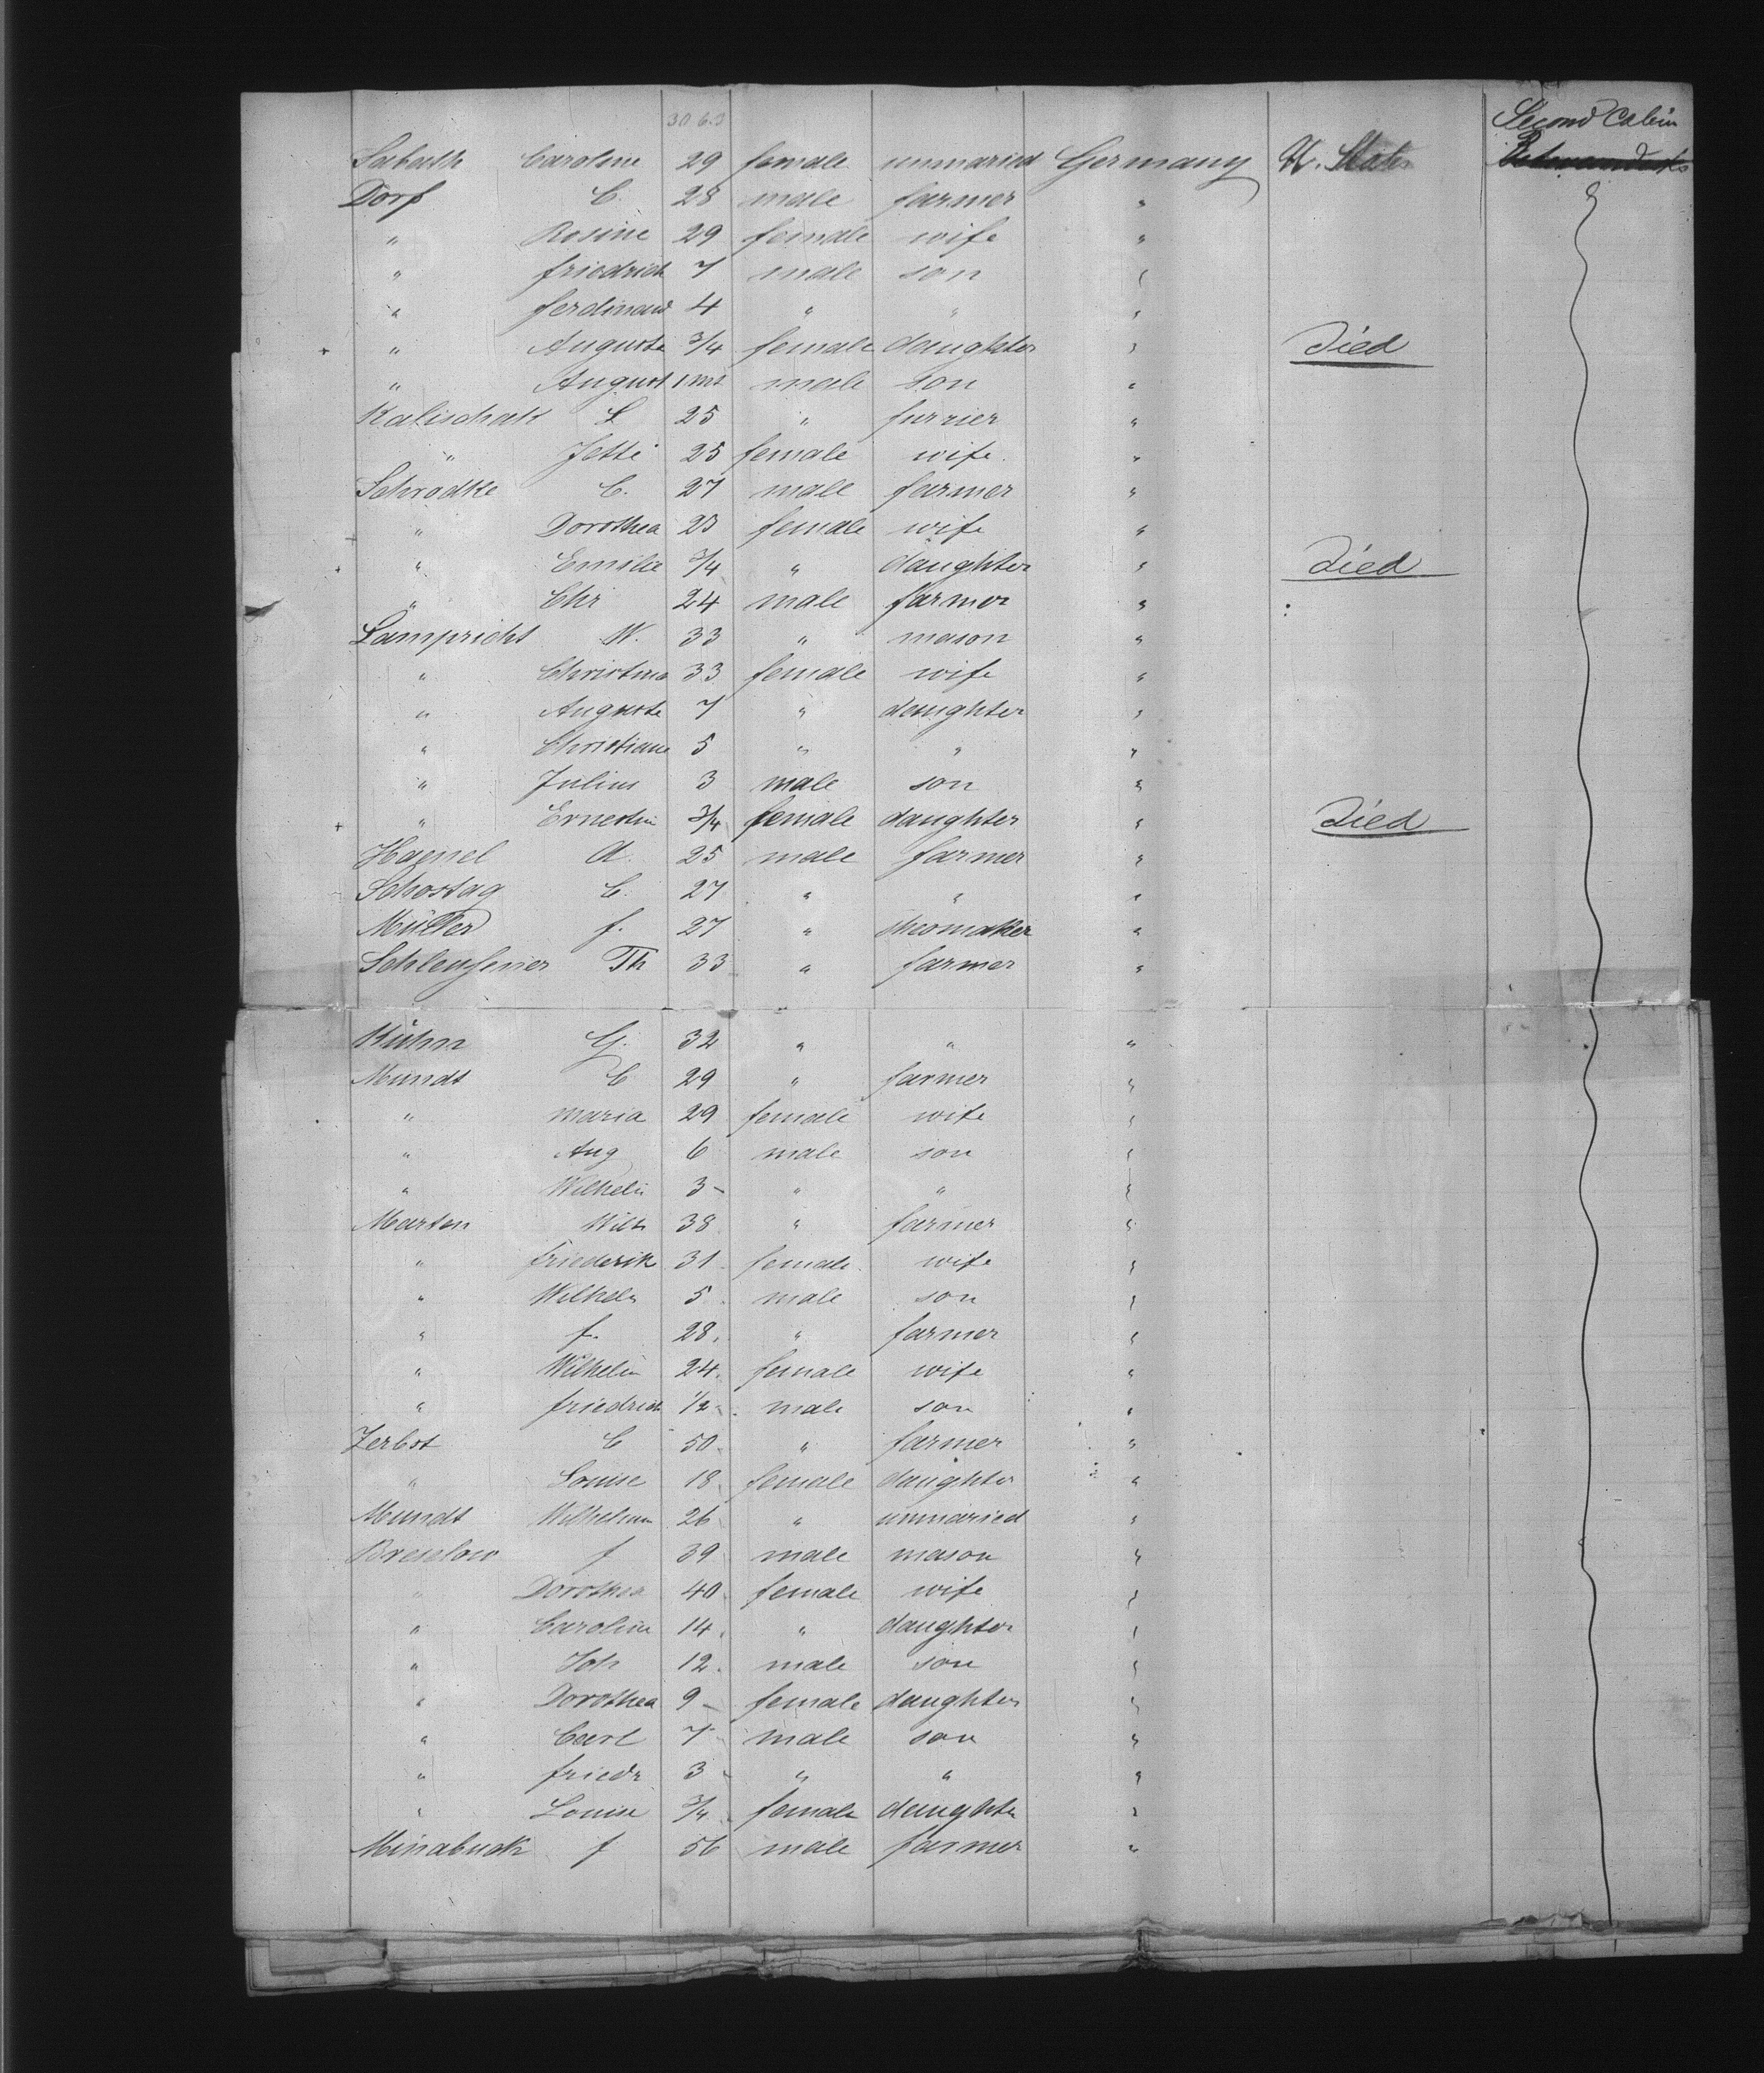 Second Cabin
Sabath Caroline 29 female unmaried Germany U. States
Dorf C. 28 male farmer "
" Rosine 29 female wife "
" friedrich 7 male son "
" ferdinand 4 " " "
+ " Auguste 3/4 female daughter " Died
" August 1 mt male son "
Kalischak L 25 " furrier "
" Jette 25 female wife "
Schradke C. 27 male farmer "
" Dorothea 25 female wife "
+ " Emilie 3/4 " daughter " Died
" Chr 24 male farmer "
Lampricht W. 33 " mason "
" Christina 33 female wife "
" Auguste 7 " daughter "
" Christiane 5 " " "
" Julius 3 male son "
+ " Ernestin 3/4 female daughter " Died
Hagnel A. 25 male farmer "
Schostag C. 27 " " "
Müller f. 27 " shoemaker "
Schleusener Th 33 " farmer "
Kühn G. 32 " " "
Mundt C 29 " farmer "
" maria 29 female wife "
" Aug 6 male son "
" Wilhelm 3 " " "
Marten Wilh 38 " farmer "
" friederik 31 female wife "
" Wilhelm 5 male son "
" f. 28 " farmer "
" Wilhelm 24 female wife "
" friedrich 1/2 male son "
Zerbst C 50 " farmer "
" Louise 18 female daughter "
Mundt Wilhelmin 26 " unmaried "
Breslow f 39 male mason "
" Dorothea 40 female wife "
" Caroline 14 " daughter "
" Joh 12 male son "
" Dorothea 9 female daughter "
" Carl 7 male son "
" friedr 3 " " "
" Louise 3/4 female daughter "
Minabuck f 56 male farmer "